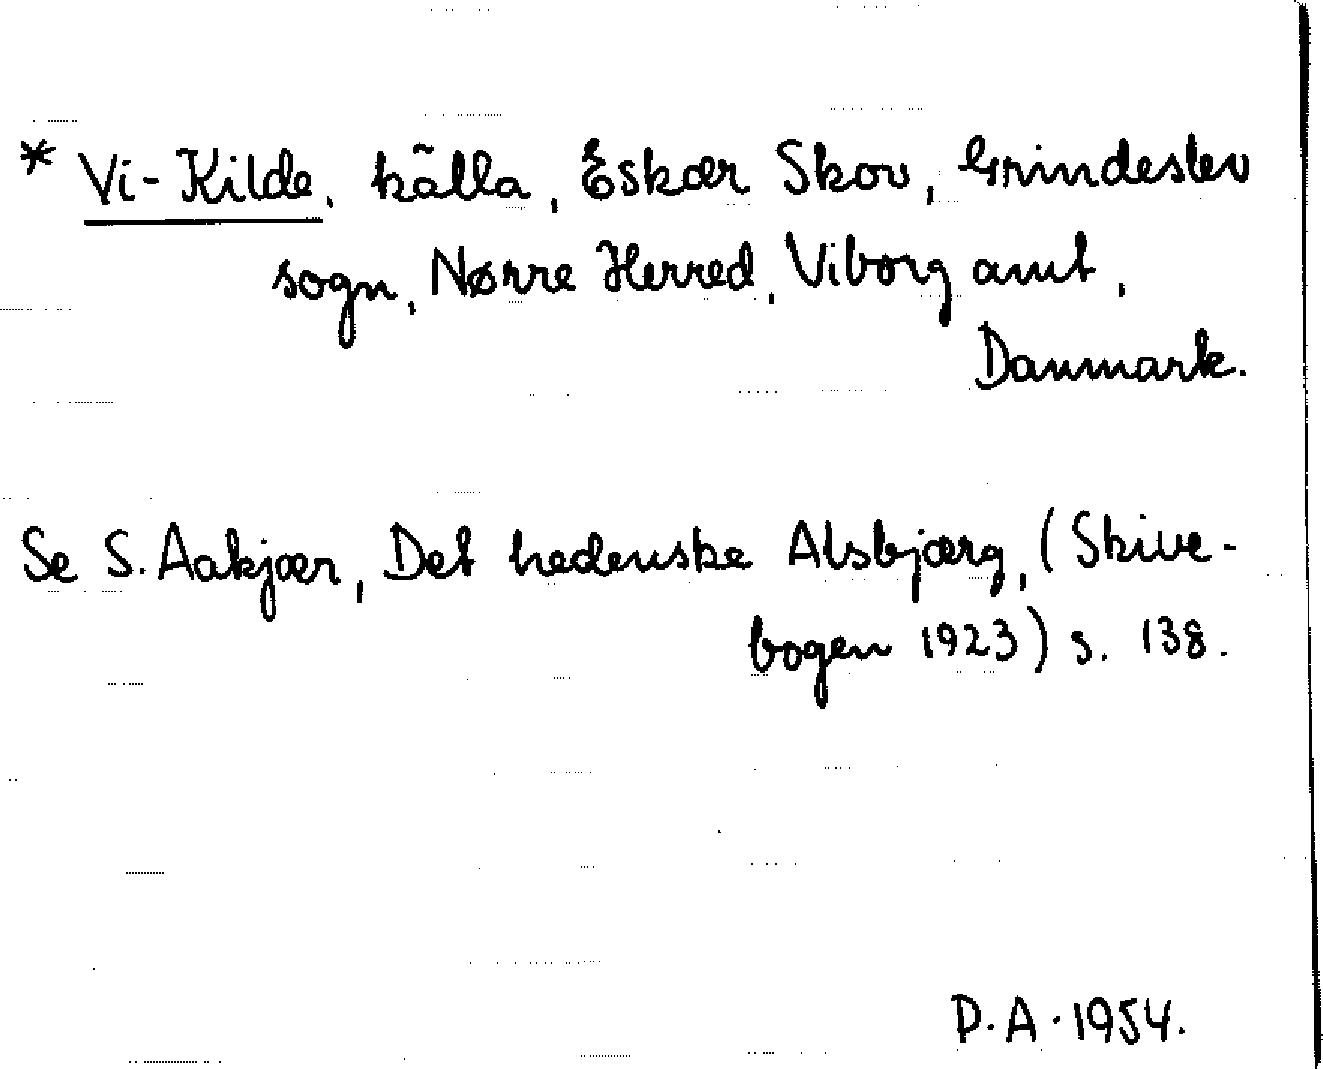 * Vi-Kilde, källa, Eskær Skov, Grindeslev
sogn, Nørre Herred, Viborg amt,
Danmark.
Se S. Aakjær, Det hedenske Alsbjærg, (Skive-
bogen 1923) s. 138.
D.A. 1954.